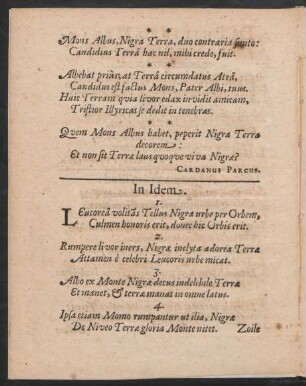 *
Mons Albus, Nigra Terra, duo contraria sunto:
Candidius Terrâ hac nil, mihi crede, fuit.
* *
Albebat priùs, at Terrâ circumdatus Atrâ,
Candidus est factus Mons, Pater Albi, tuus.
Huic Terram qvia livor edax invidit amicam,
Tristior Illyricas se dedit in tenebras.
* * *
Qvem Mons Albus habet, peperit Nigra Terra
decorem:
Et non sit Terræ laus quoque viva Nigræ?
CARDANUS PARCUS.
In Idem.
1.
LEucoreâ volitâs Tellus Nigræ urbe per Orbem,
Culmen honoris erit, donec hic Orbis erit.
2.
Rumpere livor iners, Nigræ inclyta adorea Terræ
Attamen è celebri Leucoris urbe micat.
3.
Albo ex Monte Nigræ decus indelebile Terræ
Et manet, & terræ manat in omne latus.
4.
Ipsa etiam Momo rumpantur ut ilia, Nigræ
De Niveo Terræ gloria Monte nitet.
Zoile